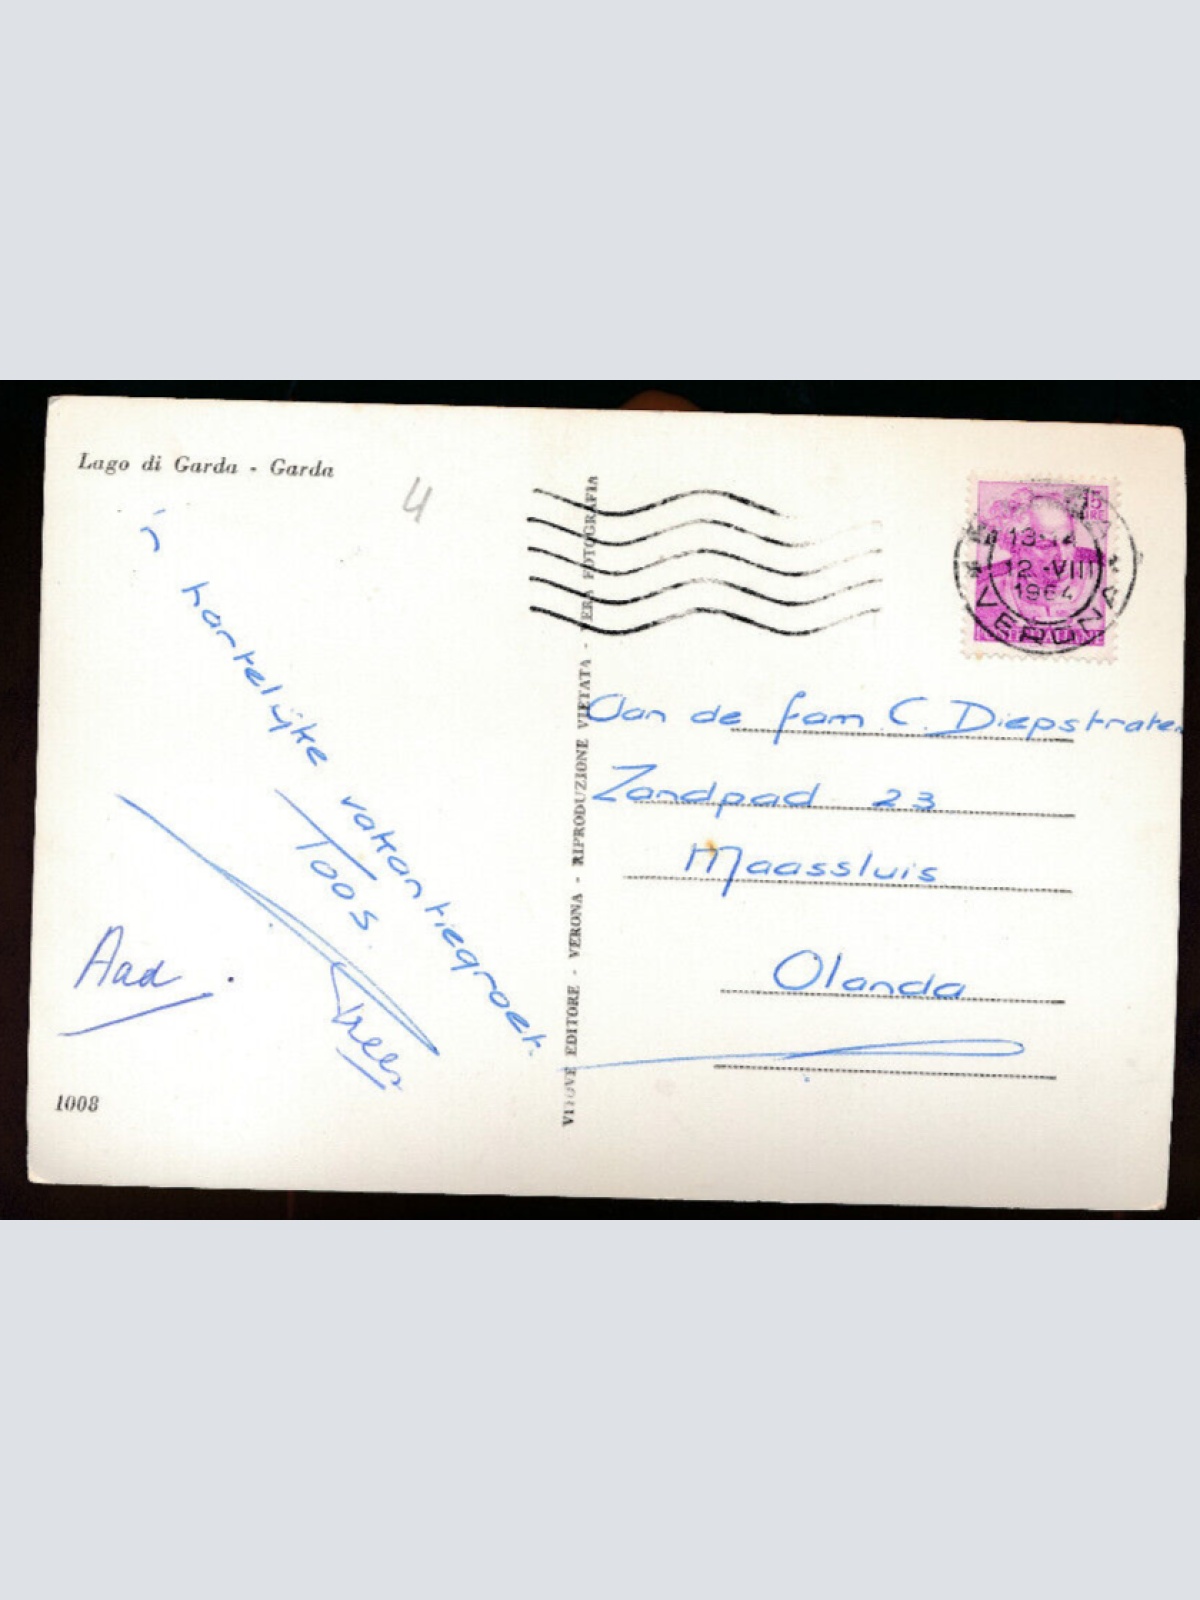 Lago di Garda - Garda
4
'n hartelijke vakantiegroet.
Toos.
Trees
Aad.
1008
VITOVE EDITORE - VERONA - RIPRODUZIONE VIETATA - VERA FOTOGRAFIA
15
LIRE
13-14
12-VIII
1964
VERONA
Aan de fam. C. Diepstraten
Zandpad 23
Maassluis
Olanda